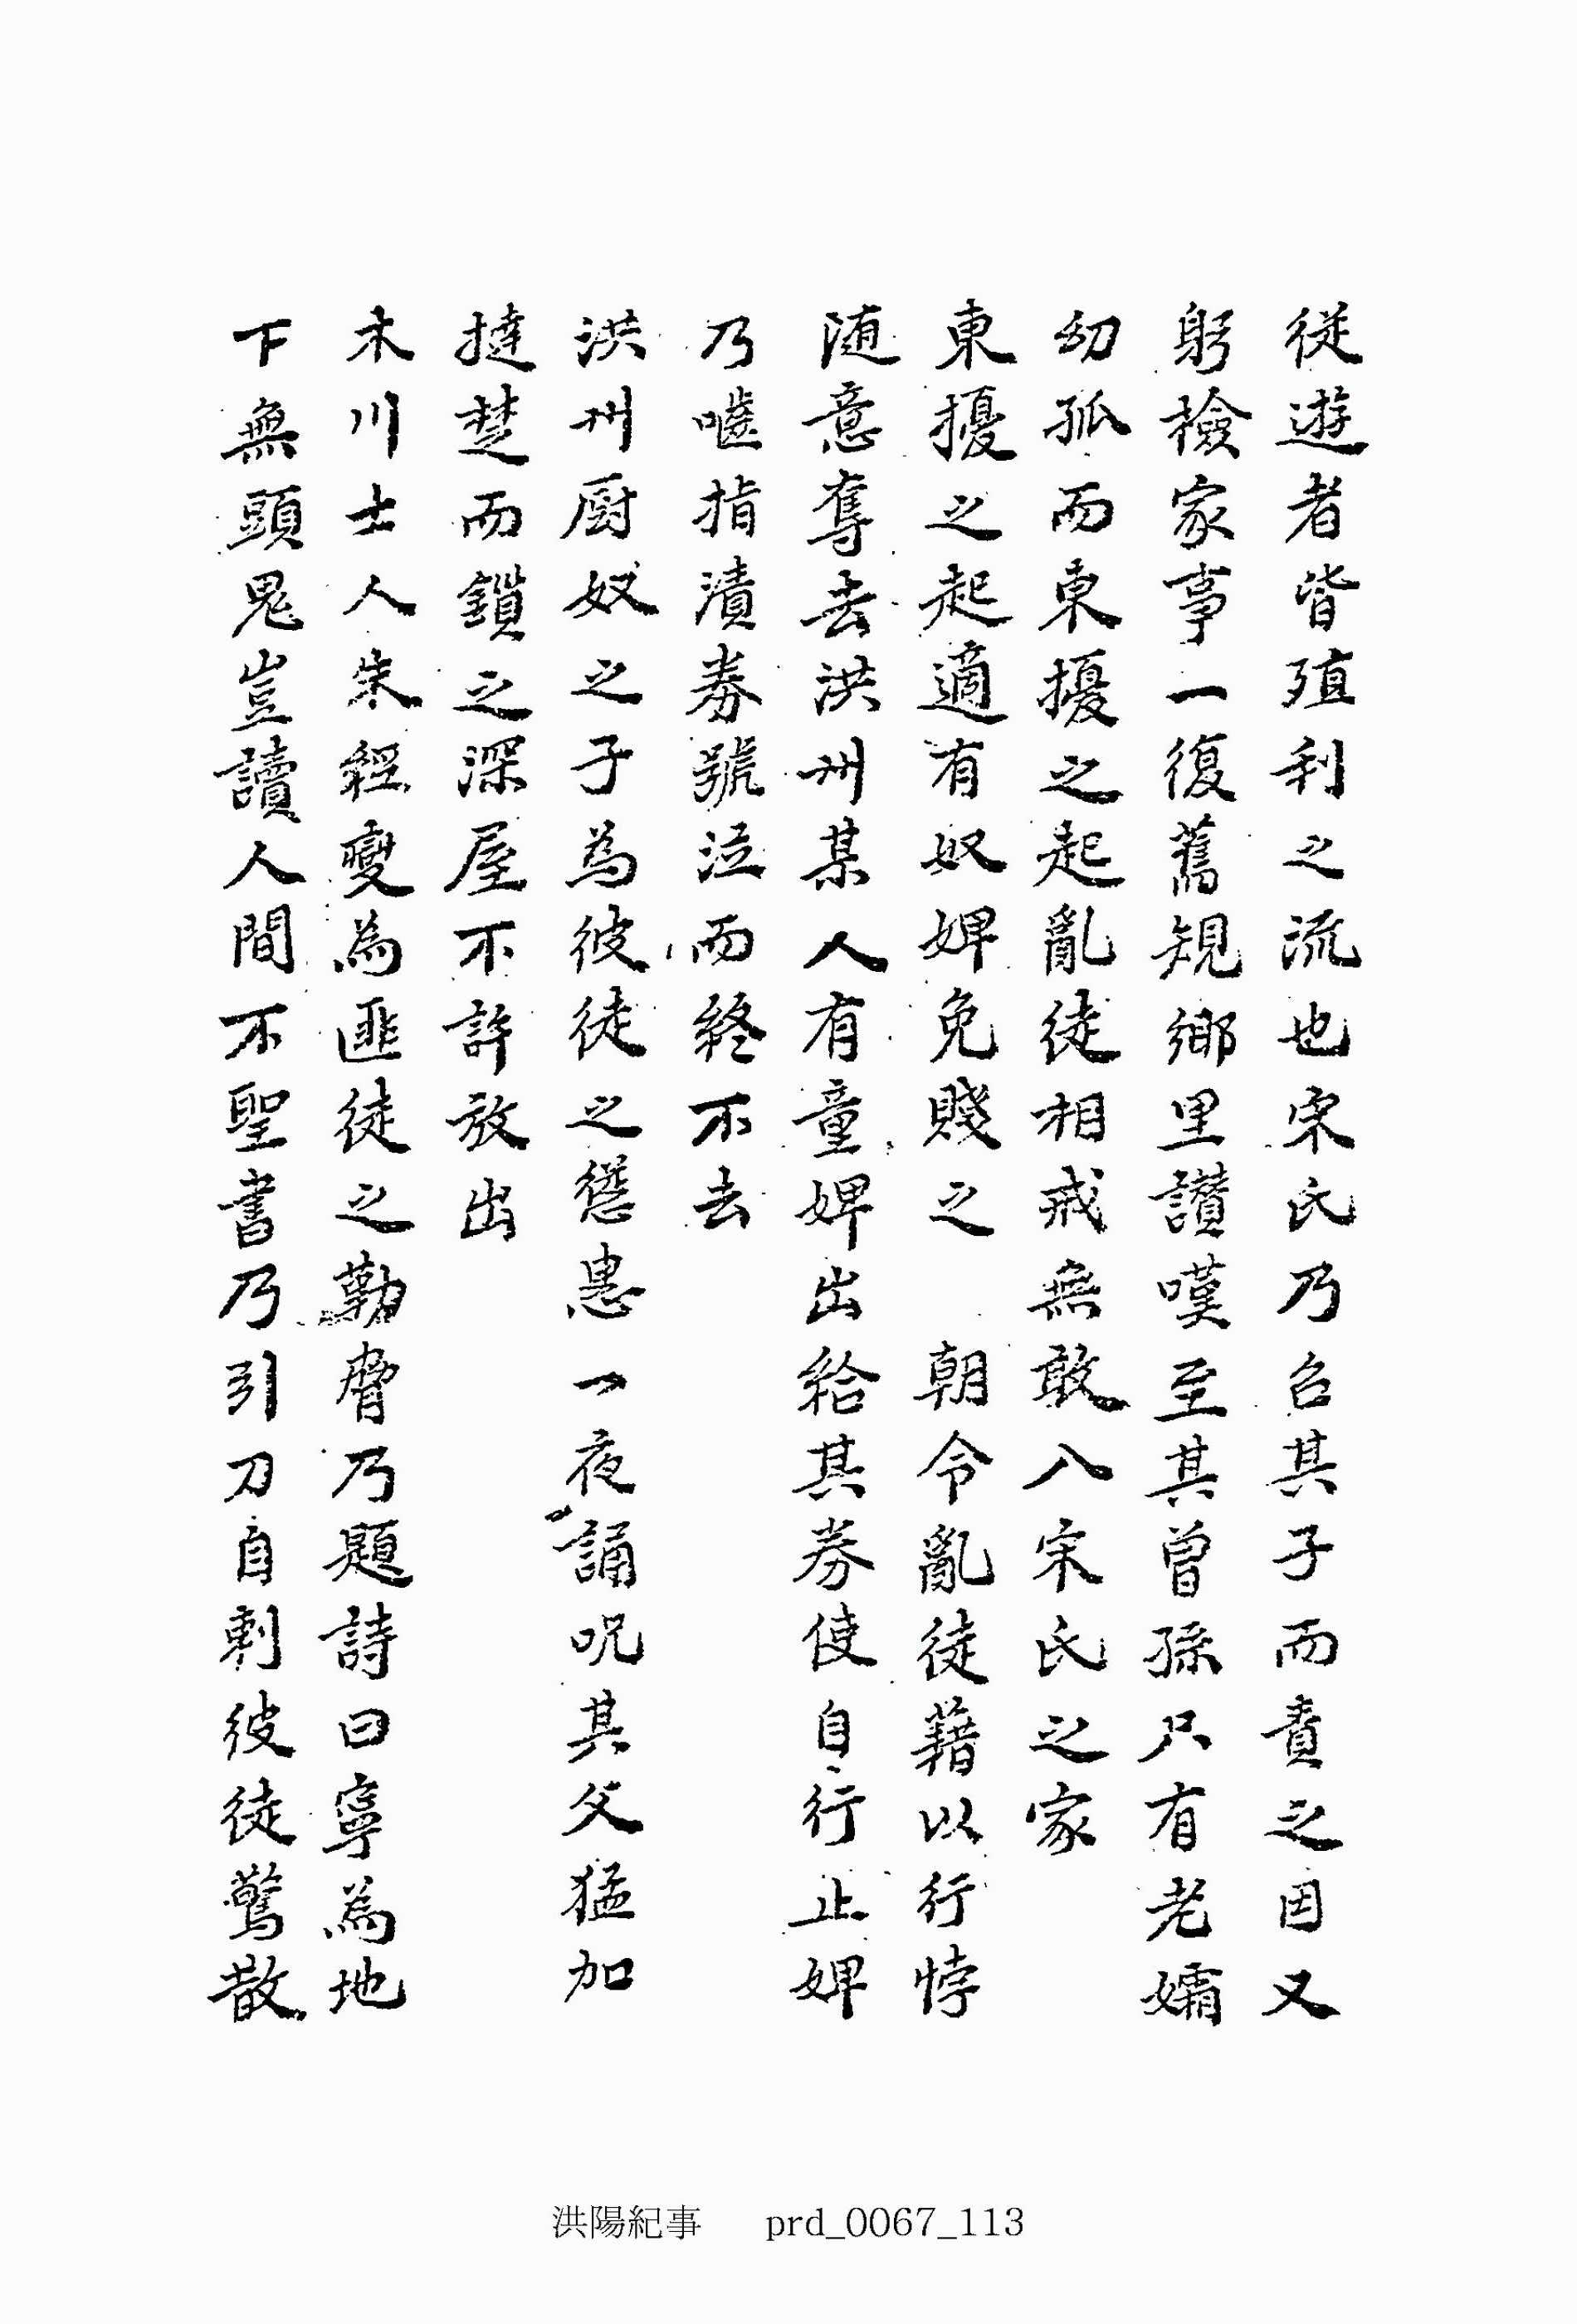 従遊者皆殖利之流也宋氏乃召其子而責之因又
躬檢家事一復舊規鄉里讃嘆至其曾孫只有老孀
幼孤而東擾之起亂徒相戒無敢入宋氏之家
東擾之起適有奴婢免賤之 朝令亂徒藉以行悖
随意奪去洪州某人有童婢出給其券使自行止婢
乃嚙指漬券號泣而終不去
洪州厨奴之子為彼徒之慫恿一夜誦呪其父猛加
撻楚而鎖之深屋不許放出
木川士人朱經變為匪徒之勒脅乃題詩曰寧為地
下無頭鬼豈讀人間不聖書乃引刀自刺彼徒驚散
洪陽紀事 prd_0067_113